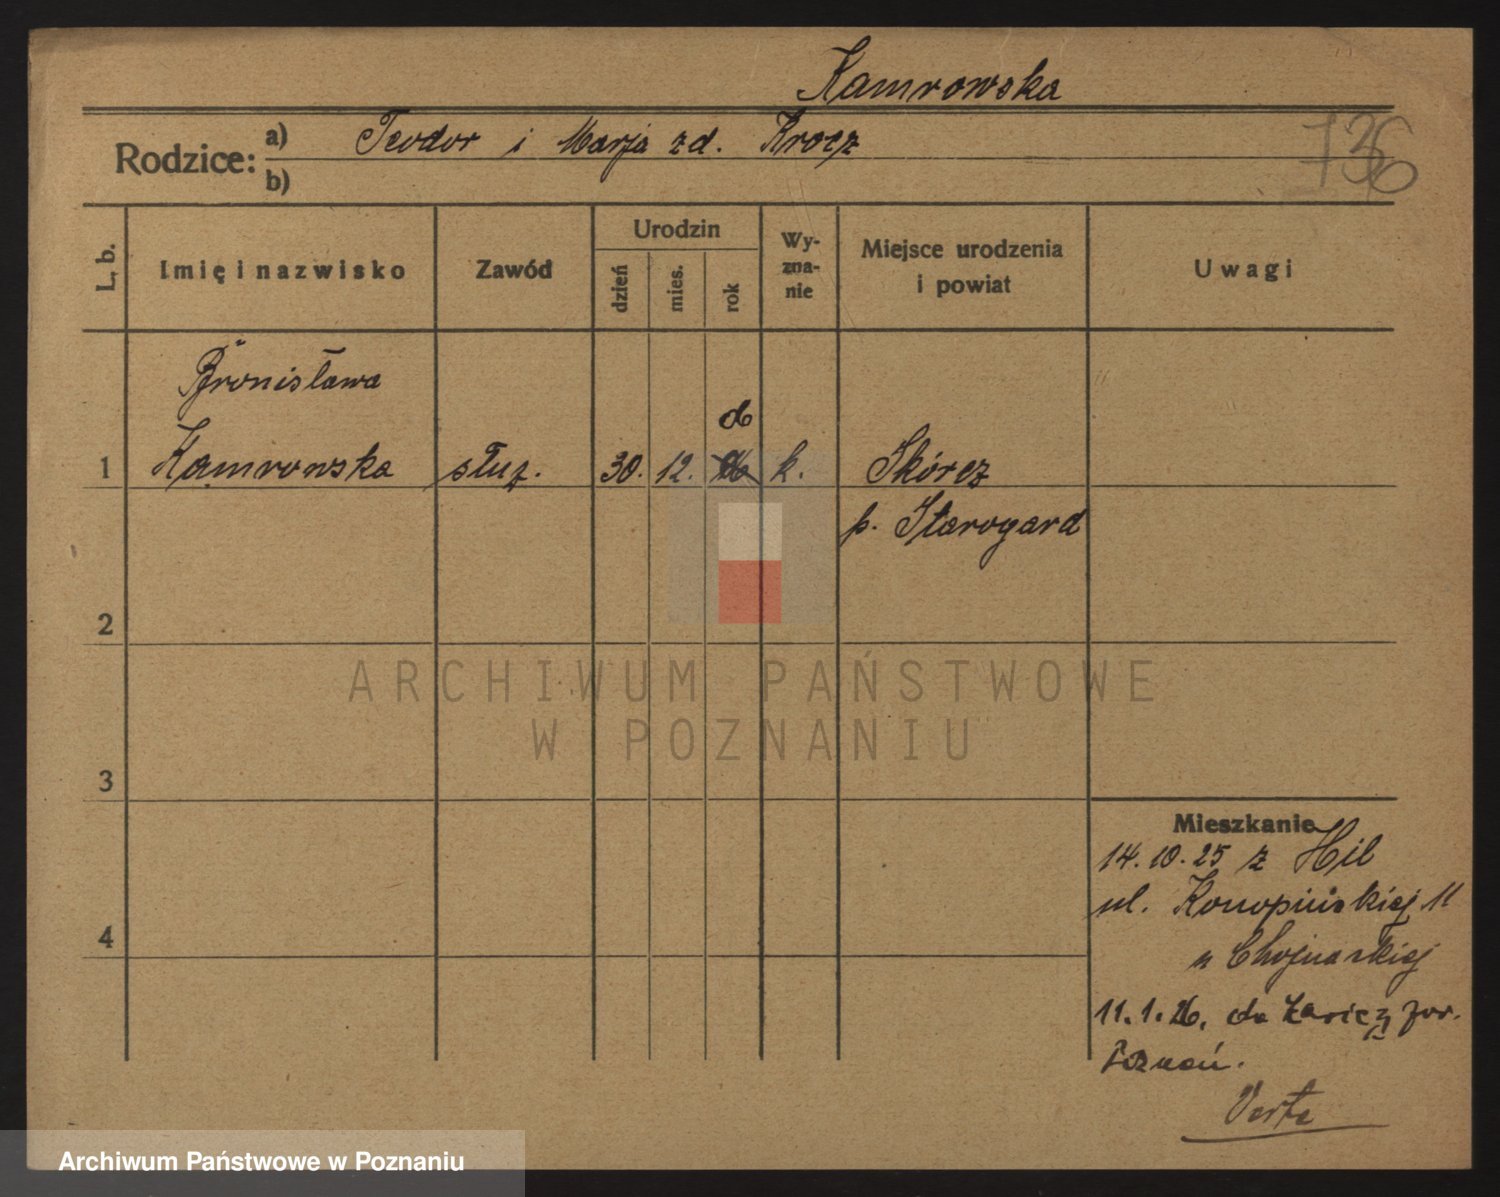 Kamrowska
Rodzice: a) Teodor i Marja zd. Krocz
b)
736
L. b.
Imię i nazwisko
Zawód
Urodzin
dzień
mies.
rok
Wy-
zna-
nie
Miejsce urodzenia
i powiat
Uwagi
Bronisława
1 Kamrowska służ. 30. 12. k. Skórcz
p. Starogard
2
3
4
Mieszkanie
14.10.25 z Hil
ul. Konopińskiej 11
u Chojnackiej
11.1.26. do
Poznań.
Verte
ARCHIWUM PAŃSTWOWE
W POZNANIU
Archiwum Państwowe w Poznaniu